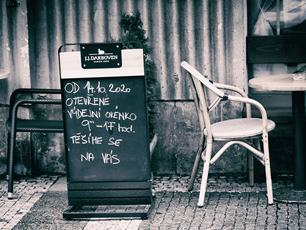 J.J.DARBOVEN
OD 14.10.2020
OTEVŘENÉ
VÝDEJNÍ OKÉNKO
9°° -17 hod.
TĚŠÍME SE
NA VÁS